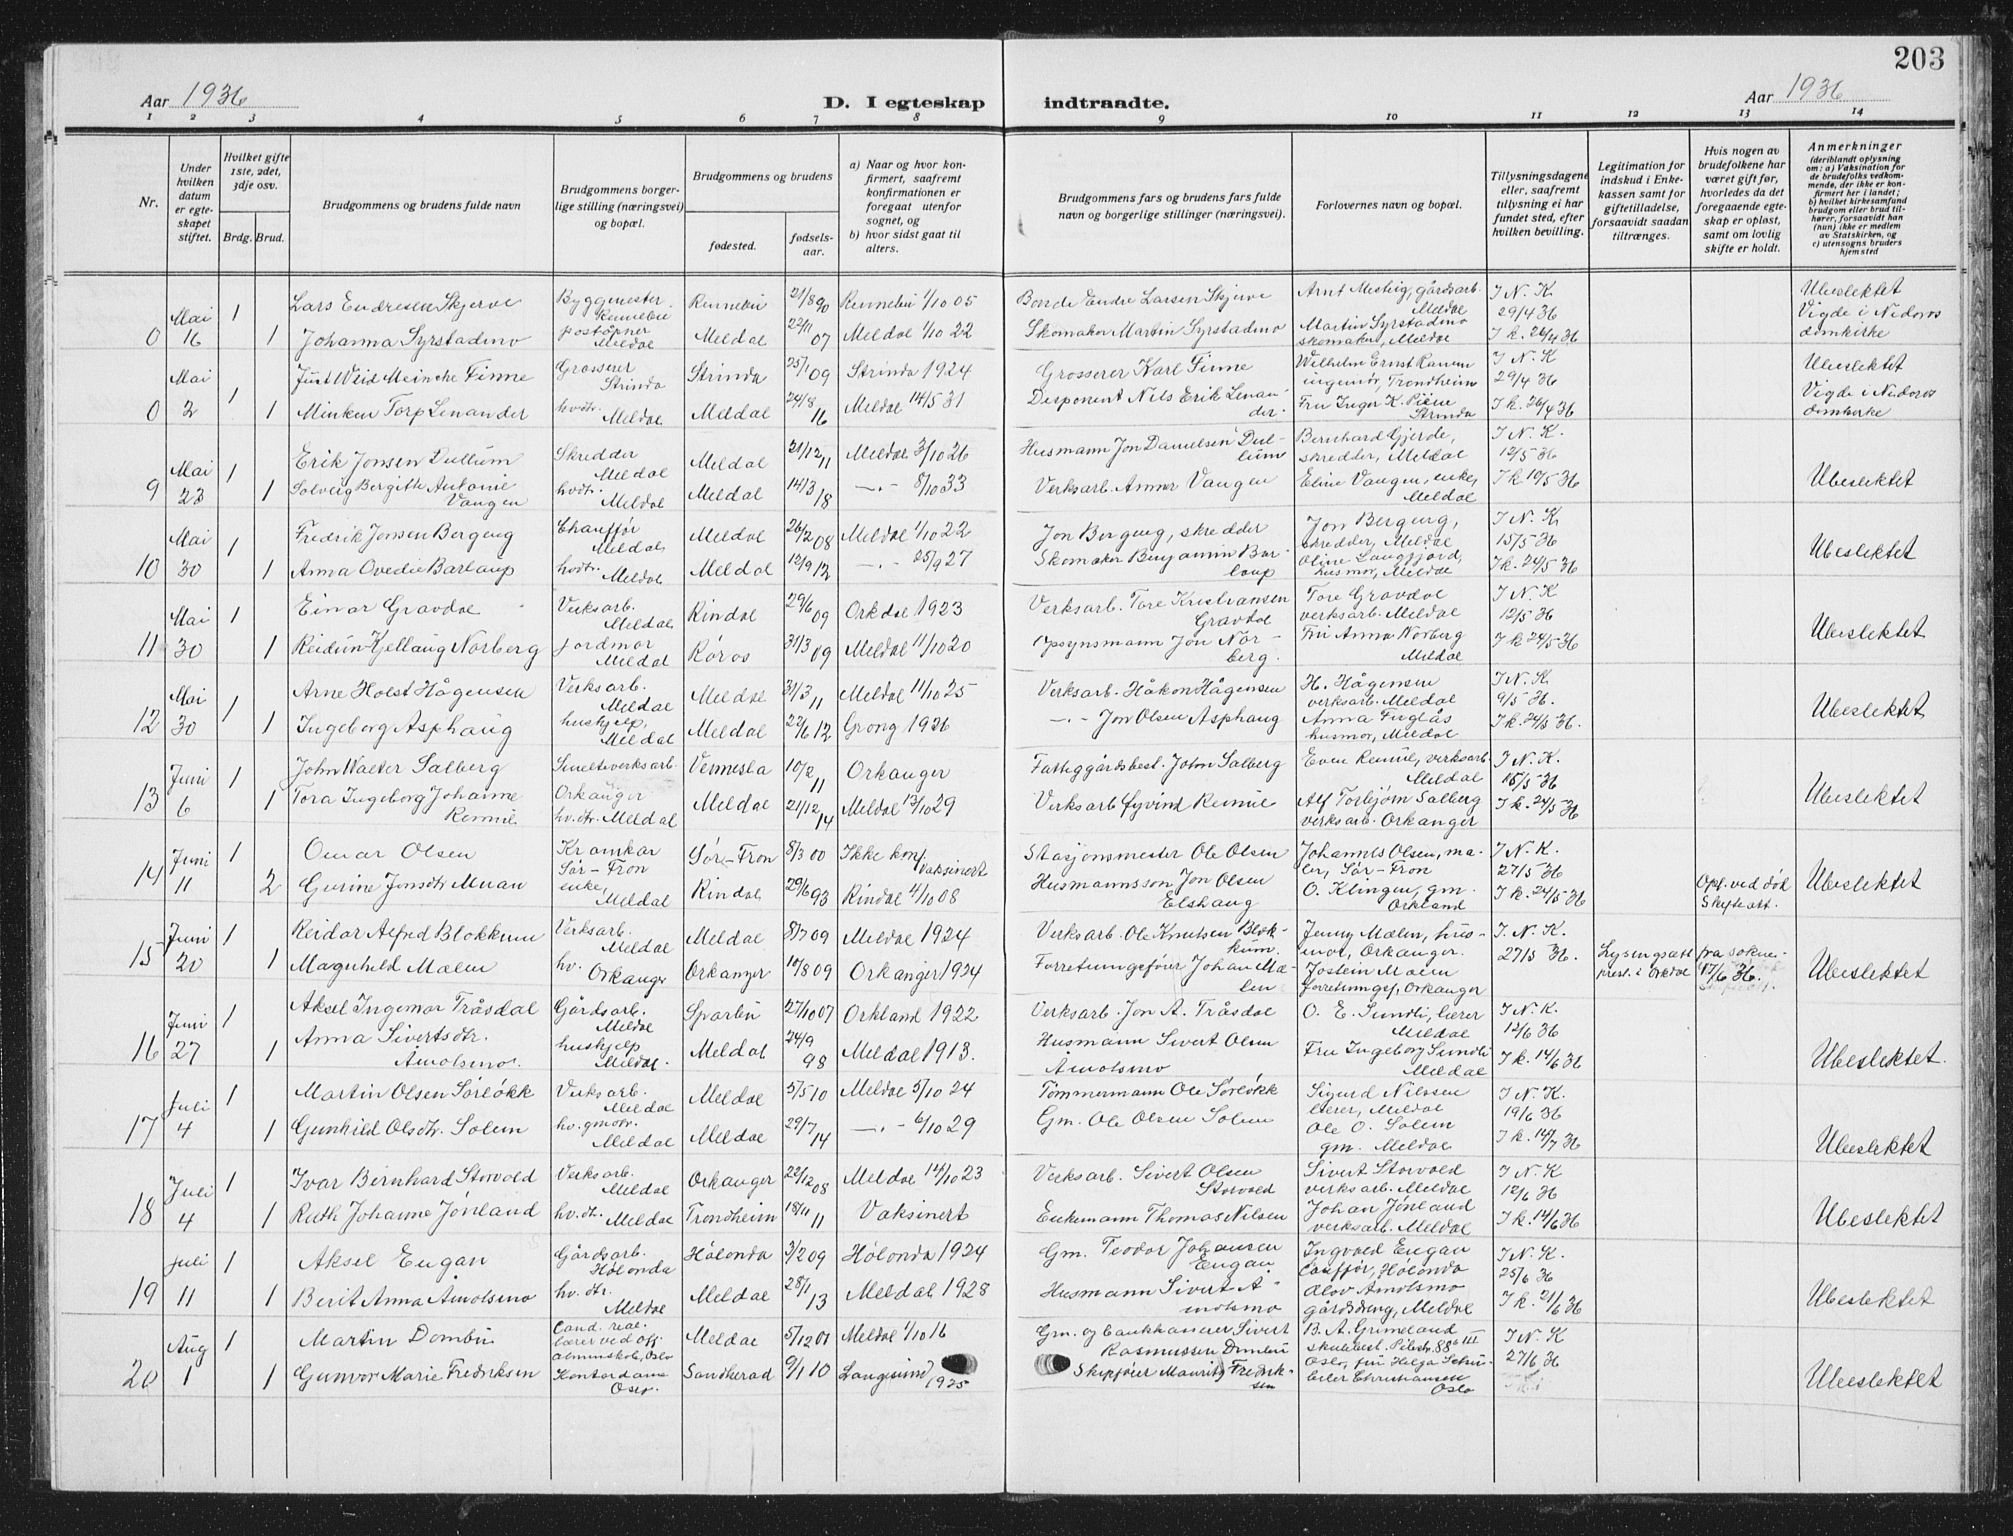 203
Aar 1936
D. I egteskap indtraadte.
Aar 1936
1 2 3 4 5 6 7 8 9 10 11 12 13 14
Nr.
Under hvilken datum er egteskapet stiftet.
Hvilket gifte 1ste, 2det, 3dje osv.
Brdg. Brud.
Brudgommens og brudens fulde navn
Brudgommens borgerlige stilling (næringsvei) og bopæl.
Brudgommens og brudens
fødested.
fødselsaar.
a) Naar og hvor konfirmert, saafremt konfirmationen er foregaat utenfor sognet, og
b) hvor sidst gaat til alters.
Brudgommens fars og brudens fars fulde navn og borgerlige stillinger (næringsvei).
Forlovernes navn og bopæl.
Tillysningsdagene eller, saafremt tillysning ei har fundet sted, efter hvilken bevilling.
Legitimation for indskud i Enkekassen samt for giftetilladelse, forsaavidt saadan tiltrænges.
Hvis nogen av brudefolkene har været gift før, hvorledes da det foregaaende egteskap er opløst, samt om lovlig skifte er holdt.
Anmerkninger
(deriblandt oplysning om: a) Vaksination for de brudefolks vedkommende, der ikke er konfirmert her i landet;
b) hvilket kirkesamfund brudgom eller brud tilhører, forsaavidt han (hun) ikke er medlem av Statskirken, og
c) utensogns bruders hjemsted
0 Mai 16 1 Lars Endresen Skjerve Byggmester Rennebu Rennebu 21/8 90 Rennebu 1/10 05 Bonde Endre Larsen Skjerve Arnt Mestvig, gårdsarb. Meldal I N. K 29/4 36 Ubeslektet
1 Johanna Syrstadmo postopner Meldal Meldal 22/11 07 Meldal 1/10 22 Skomaker Martin Syrstadmo Martin Syrstadmo skomaker, Meldal I k. 26/4 36 Vigde i Nidaros domkirke
0 Mai 2 1 Just Wiid Meincke Finne Grosserer Strinda Strinda 25/1 09 Strinda 1924 Grosserer Karl Finne Wilhelm Ernst ingeniør, Trondheim I N. K 29/4 36 Ubeslektet
1 Minken Torp Lenander hvdtr. Meldal Meldal 24/8 16 Meldal 14/5 31 Disponent Nils Erik Lenander Fru Inger K. Strinda I k. 26/4 36 Vigde i Nidaros domkirke
9 Mai 23 1 Erik Jonsen Dullum Skredder Meldal Meldal 21/12 11 Meldal 3/10 26 Husmann Jon Danielsen Dullum Bernhard Gjerde, skredder, Meldal I N. K. 12/5 36
1 Solveig Bergitte Antonie Vangen hvdtr. Meldal Meldal 14/3 18 —"— 8/10 33 Verksarb. Annar Vangen Eline Vangen, enke, Meldal I k 10/5 36 Ubeslektet
10 Mai 30 1 Fredrik Jonsen Bergeng Chauffør Meldal Meldal 26/2 08 Meldal 1/10 22 Jon Bergeng, skredder Jon Bergeng, skredder, Meldal I N. K 15/5 36
1 Anna Ovedie Barlaup hvdtr. Meldal Meldal 12/9 12 —"— 25/9 27 Skomaker Benjamin Barlaup Oline Langfjord, husmor, Meldal I k. 24/5 36 Ubeslektet
11 Mai 30 1 Einar Gravdal Verksarb. Meldal Rindal 29/6 09 Orkdal 1923 Verksarb. Tore Kristiansen Gravdal Tore Gravdal verksarb. Meldal I N. K 12/5 36
1 Reidun Kjellaug Norberg jordmor Meldal Røros 31/3 09 Meldal 11/10 20 Opsynsmann Jon Norberg. Fru Anna Norberg Meldal I k 24/5 36 Ubeslektet
12 Mai 30 1 Arne Holst Hågensen Verksarb. Meldal Meldal 31/3 11 Meldal 11/10 25 Verksarb. Håkon Hågensen H. Hågensen verksarb. Meldal I N. K 9/5 36.
1 Ingeborg Asphaug hushjelp, Meldal Meldal 22/6 12 Grong 1926 —"— Jon Olsen Asphaug Anna Fuglås husmor, Meldal I k. 24/5 36. Ubeslektet
13 Juni 6 1 John Walter Salberg Smelteverksarb. Orkanger Vennesla 10/2 11 Orkanger Fattiggårdsbest. John Salberg Even Remme, verksarb. Meldal I N. K. 15/5 36
1 Tora Ingeborg Johanne Remme hv.dtr. Meldal Meldal 21/12 14 Meldal 13/10 29 Verksarb Øyvind Remme Alf Torbjørn Salberg verksarb. Orkanger I k. 24/5 36 Ubeslektet
14 Juni 11 1 Omar Olsen Kramkar Sør-Fron Sør-Fron 8/3 00 Ikke konf. Vaksinert Stasjonsmester Ole Olsen Johannes Olsen, maler, Sør-Fron I N. K. 27/5 36
2 Gurine Jonsdtr Muan enke, Meldal Rindal 29/6 93 Rindal 4/10 08 Husmannsson Jon Olsen Elshaug O. Klingen, gm. Orkland I k. 24/5 36 Opl. ved død Skifteatt. Ubeslektet
15 Juni 20 1 Reidar Alfred Blokkum Verksarb. Meldal Meldal 8/7 09 Meldal 1924 Verksarb. Ole Knutsen Blokkum. Jenny Mælen, husmor, Orkanger. I. N. K. 27/5 36.
1 Magnhild Mælen hv. Orkanger Orkanger 10/8 09 Orkanger 1924 Forretningsfører Johan Mælen Jostein Mælen forretningsf, Orkanger Lysingsatt fra sokneprest. i Orkdal 17/6 36. Ubeslektet
16 Juni 27 1 Aksel Ingemar Tråsdal Gårdsarb. Meldal Sparbu 27/10 07 Orkland 1922 Verksarb. Jon A. Tråsdal O. E. Sundli, lærer Meldal I N. K. 12/6 36
1 Anna Sivertsdtr. Åmotsmo. hushjelp Meldal. Meldal 24/9 98 Meldal 1913. Husmann Sivert Olsen Åmotsmo Fru Ingeborg Sundli Meldal I k. 14/6 36 Ubeslektet.
17 Juli 4 1 Martin Olsen Sørløkk Verksarb. Meldal Meldal 5/5 10 Meldal 5/10 24 Tømmermann Ole Sørløkk Sigurd Nilssen lærer, Meldal I N. K. 19/6 36
1 Gunhild Olsdtr. Solem hv. gmdtr. Meldal Meldal 29/7 14 —"— 6/10 29 Gm. Ole Olsen Solem Ole O. Solem gm. Meldal I k. 36 Ubeslektet
18 Juli 4 1 Ivar Bernhard Storvold Verksarb. Meldal Orkanger 22/12 08 Meldal 14/10 23 Verksarb. Sivert Olsen Storvold Sivert Storvold verksarb. Meldal I N. K 12/6 36
1 Ruth Johanne Jønland hv.dtr. Meldal Trondheim 18/11 11 Vaksinert Enkemann Thomas Nilsen Johan Jønland verksarb. Meldal I k. 14/6 36 Ubeslektet
19 Juli 11 1 Aksel Engan Gårdsarb. Hølonda Hølonda 3/2 09 Hølonda 1924 Gm. Teodor Johansen Engan Ingvald Engan Hølonda I N. K. 25/6 36
1 Berit Anna Åmotsmo hv. dtr. Meldal Meldal 28/1 13 Meldal 1928 Husmann Sivert Åmotsmo Olov Åmotsmo gårdsdreng, Meldal I k. 21/6 36 Ubeslektet
20 Aug 1 1 Martin Dombu Cand. real. lærer ved off. almenskole, Oslo Meldal 5/12 01 Meldal 1/10 16 Gm. og bankkasserer Sivert Rasmussen Dombu B. A. Grimeland skolebest. 88 III Oslo, I N. K 27/6 36
1 Gunvor Marie Fredriksen Kontordame Oslo. Sandherad 9/1 10 Langesund 1925 Skipsfører Mauritz Fredriksen fru Helga Christiansen Oslo Ubeslektet